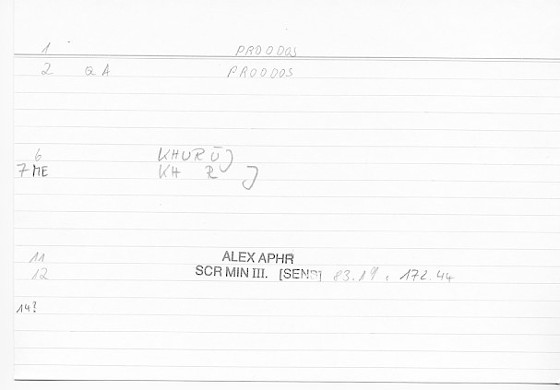 1 PROODOS
2 QA PROODOS
6 KHURŪJ
7 ME KH R J
11 ALEX APHR
12 SCR MIN III. [SENS] 83.19, 172.44
14?